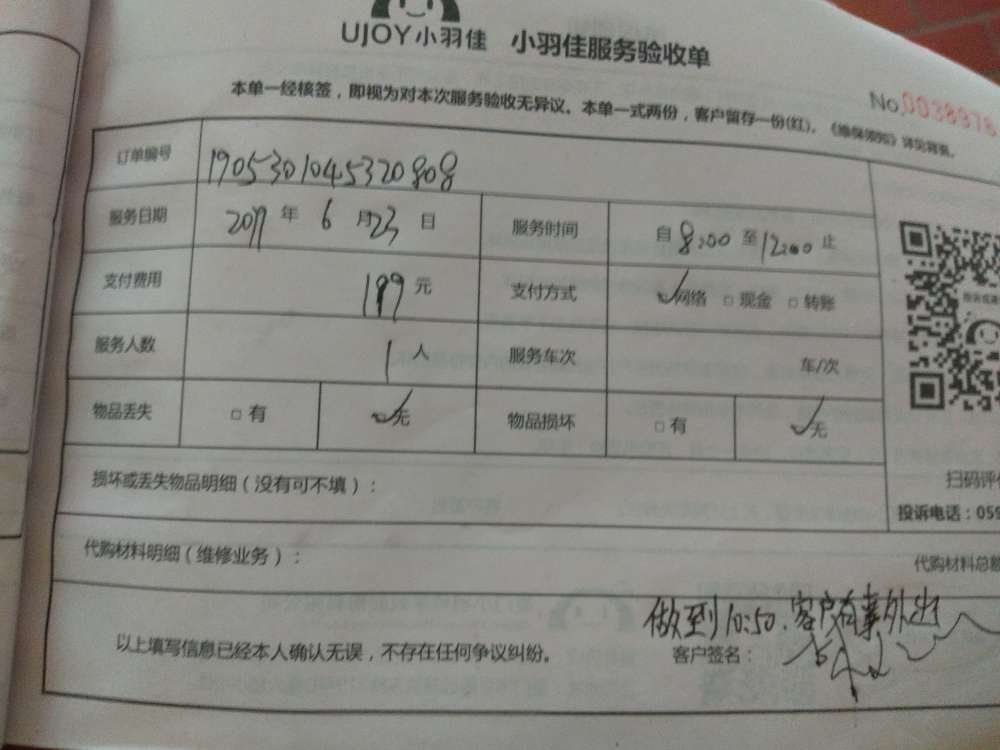 UJOY小羽佳 小羽佳服务验收单
本单一经核签，即视为对本次服务验收无异议。本单一式两份，客户留存一份(红)。《维保须知》详见背面。
No.0038976
订单编号 1905301045320808
服务日期 2019年6月23日 服务时间 自8:00至12:00止
支付费用 199元 支付方式 ✓网络 □现金 □转账
服务人数 1人 服务车次 车/次
物品丢失 □有 ✓无 物品损坏 □有 ✓无
损坏或丢失物品明细（没有可不填）：
扫码评价
投诉电话：059
代购材料明细（维修业务）：
代购材料总额
做到10:50.客户有事外出
以上填写信息已经本人确认无误，不存在任何争议纠纷。 客户签名：